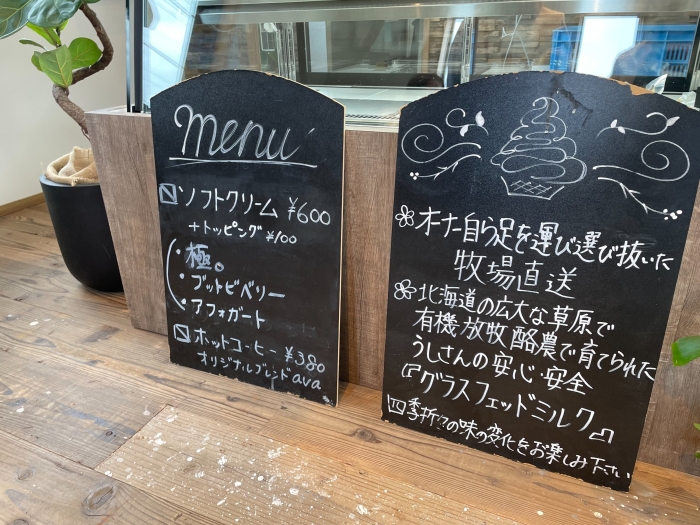 menu
ソフトクリーム ¥600
+トッピング ¥100
・極。
・ブットビベリー
・アフォガート
ホットコーヒー ¥380
オリジナルブレンド ava
オーナー自ら足を運び選び抜いた
牧場直送
北海道の広大な草原で
有機放牧酪農で育てられた
うしさんの安心・安全
『グラスフェッドミルク』
四季折々の味の変化をお楽しみ下さい